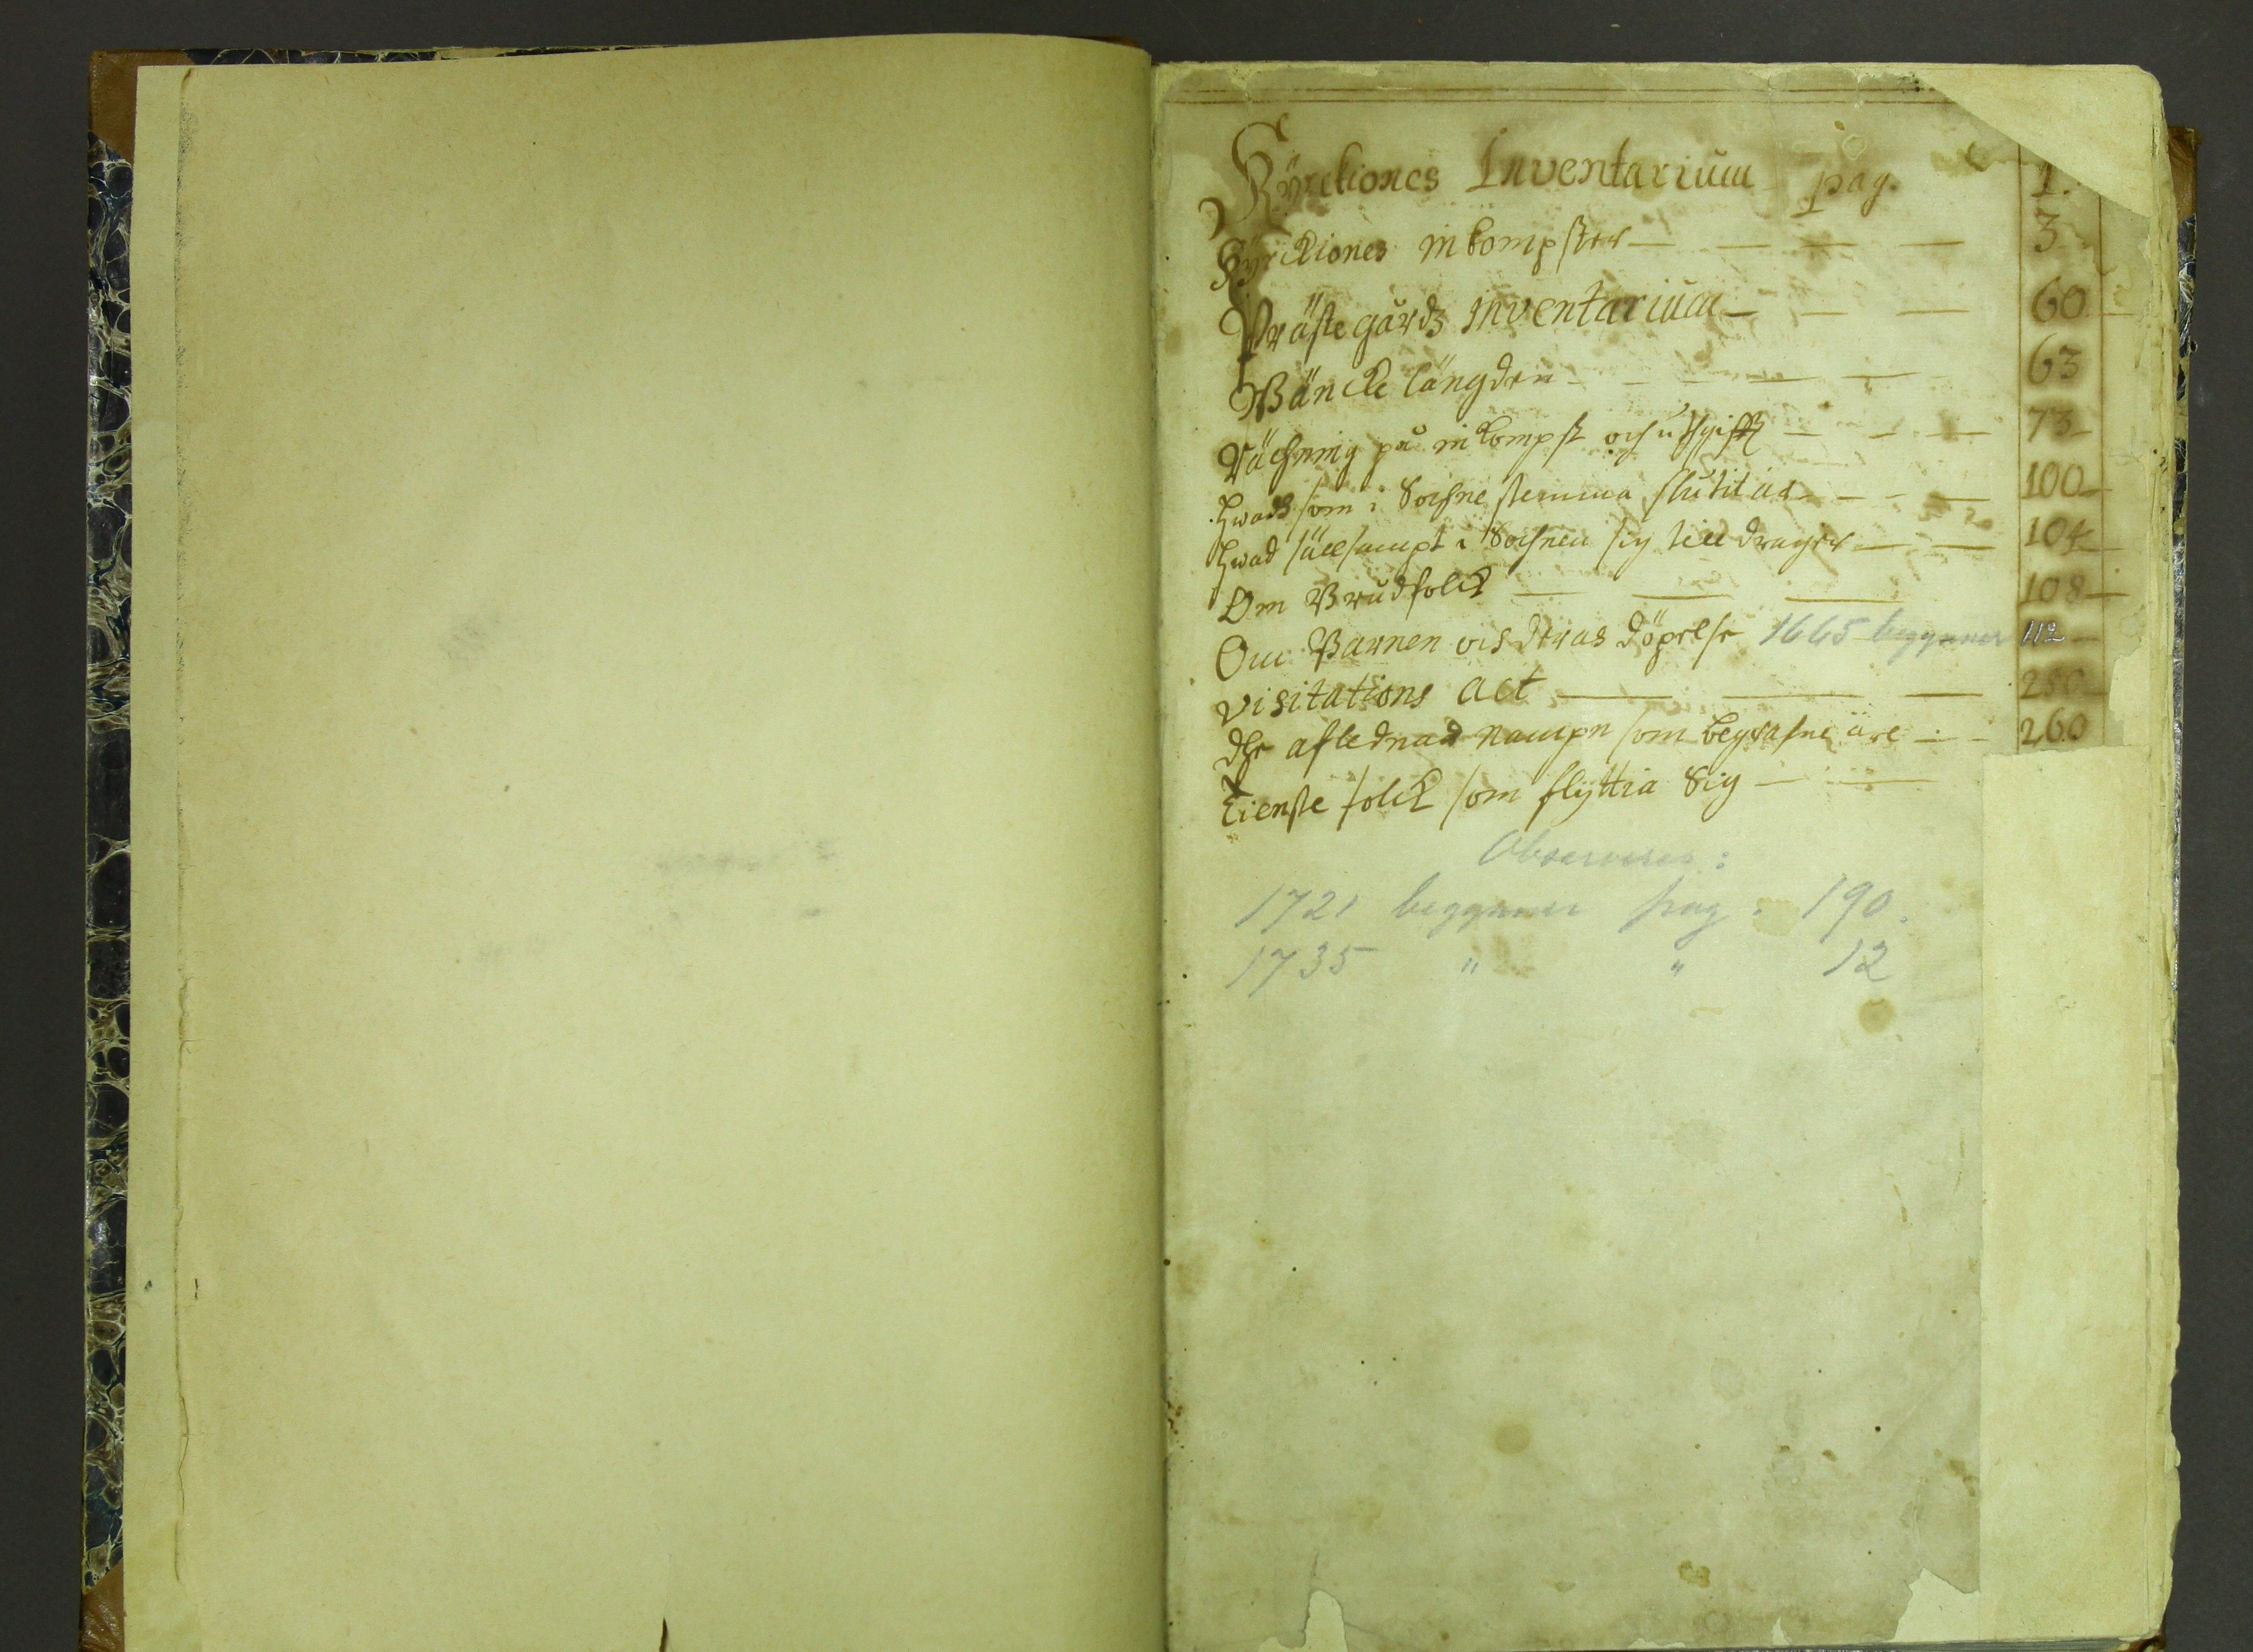 Kÿrckiones Inventarium pag. 1.
Kÿrckiones inkompster — — — — 3
Prästegårdz inventarium — — — 60
Bäncke längden - - - — — 63
Rächning på inkompst och uthgifft — - — 73
Hwadh som i Sochne stemma slutit är - - - — 100
Hwad sällsampt i Sochnen sig till drager — — 104
Om Brudfolck — — — 108
Om Barnen och deras döpelse 1665 begynner 112
Visitations act — — — 250
the aflednas nampn som begrafne äre - - 260
Tienste folck som flÿttia Sig — —
Observeras:
1721 begynner pag. 190.
1735 " " 12